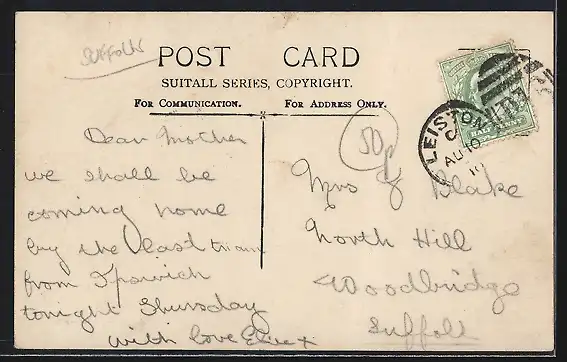 Suffolk
POST CARD
SUITALL SERIES, COPYRIGHT.
FOR COMMUNICATION.
FOR ADDRESS ONLY.
50p
LEISTON
AU 10
HALF PENNY
Dear Mother
we shall be
coming home
by the last train
from Ipswich
tonight Thursday
with love
Mrs J Blake
North Hill
Woodbridge
Suffolk